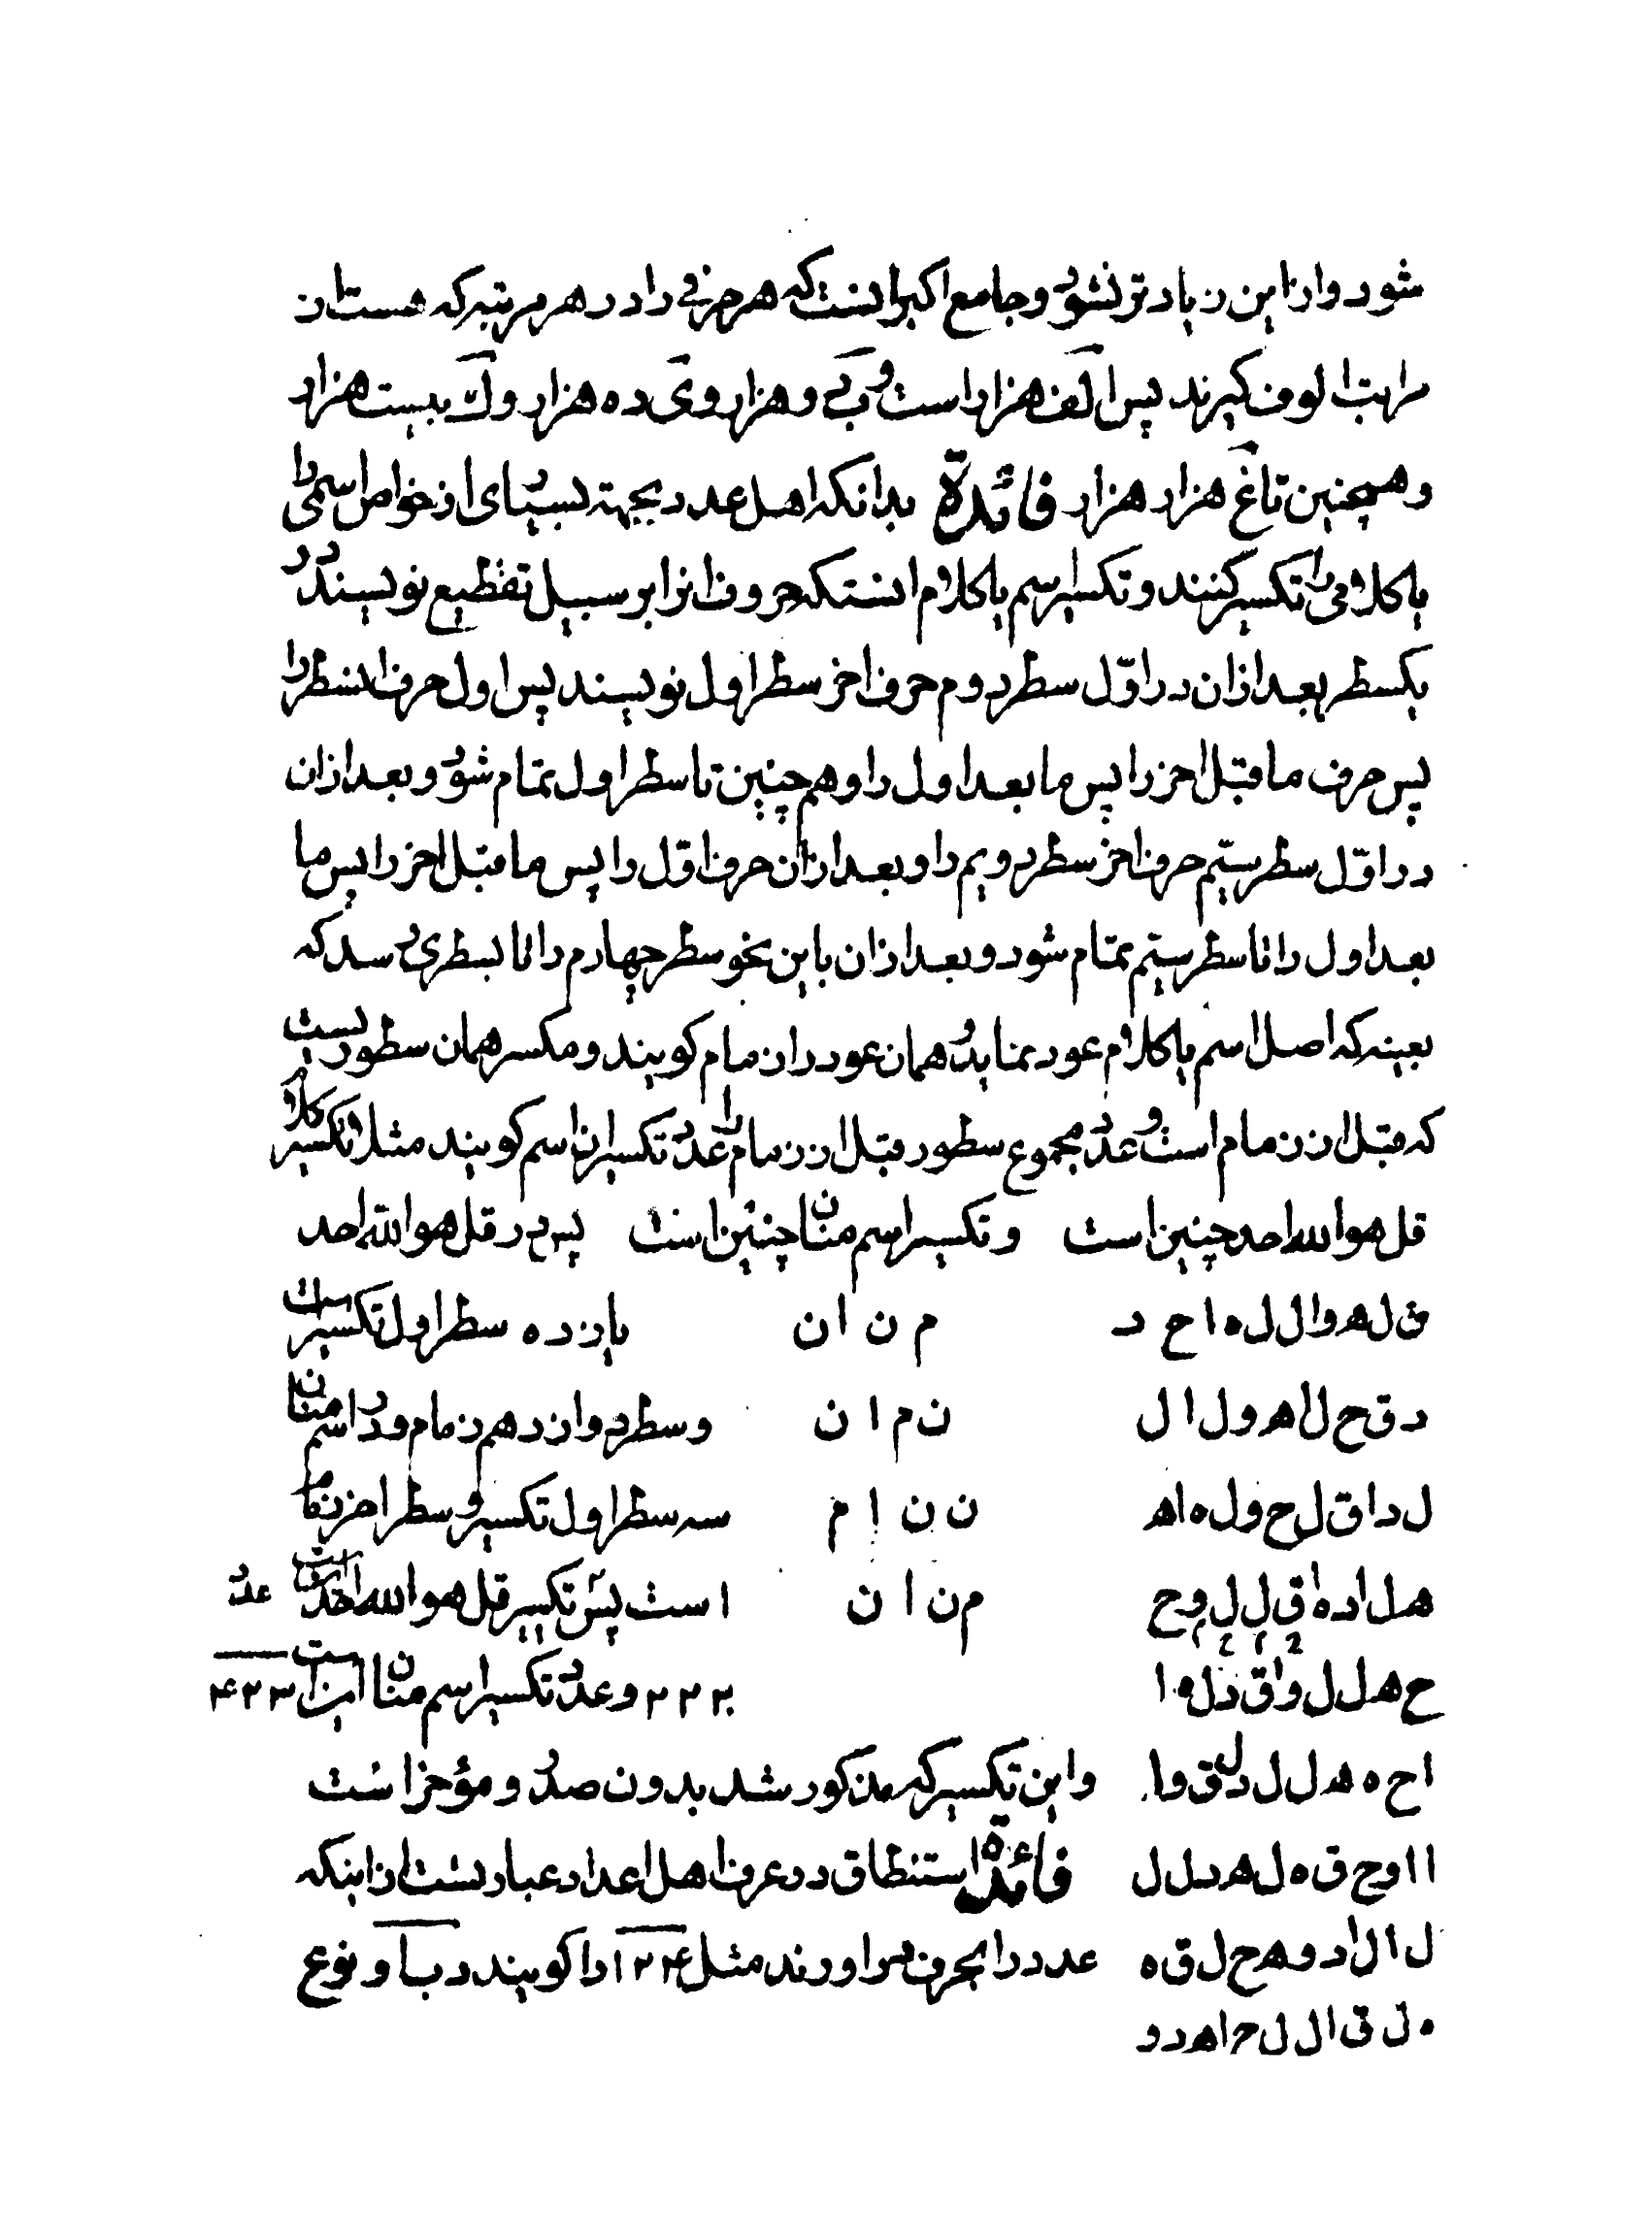 شود واز این زیادتر نشود و جامع اکبر انست که هر حرفی را در هر مرتبه که هست از
مراتب الوف کیرند پس الف هزار است و ب دو هزار و ی ده هزار و ک بیست هزار
و همچنین تا غ هزار هزار فائدة بدانکه اهل عدد بجهة بسیاری از خواص اسمی را
یا کلامی را تکسیر کنند و تکسیر اسم یا کلام انستکه حروف انرا بر سبیل تقطیع نویسند در
یکسطر بعد ازان در اوّل سطر دوم حرف اخر سطر اول نویسند پس اول حرف انسطر را
پس حرف ما قبل اخر را پس ما بعد اول را و هم چنین تا سطر اول تمام شود و بعد ازان
در اوّل سطر سیّم حرف اخر سطر دویم را و بعد ازان حرف اوّل را پس ما قبل اخر را پس ما
بعد اول را تا سطر سیّم تمام شود و بعد ازان باین نحو سطر چهارم را تا بسطری رسد که
بعینه که اصل اسم یا کلام عود نماید و همان عود را زمام کویند و مکسر همان سطوریست
که قبل از زمام است و عدد مجموع سطور قبل از زمام را عدد تکسیر ان اسم کویند مثلا تکسیر کلام
قل هو الله احد چنین است و تکسیر اسم منان چنین است پس در قل هو الله احد
ق ل ه و ا ل ل ه ا ح د م ن ا ن یازده سطر اول تکسیر است
د ق ح ل ا ه ه و ل ا ل ن م ا ن و سطر دوازدهم زمام و در اسم منان
ل د ا ق ل ح و ل ه ا ه ن ن ا م سه سطر اول تکسیر و سطر اخر زمام
ه ل ا د ه ا ق ل ل و ح م ن ا ن است پس تکسیر قل هو الله احد این است عدد
ح ه ل ل و ا ق د ل ه ا ۲۲۲ و عدد تکسیر اسم منان این است ۴۲۳
ا ح ه ه ل ل د ل ق و ا و این تکسیر که مذکور شد بدون صدر و مؤخر است
ا ا و ح ق ه ل ه د ل ل فائدة استنطاق در عرف اهل اعداد عبارتست از اینکه
ل ا ل ا د و ه ح ل ق ه عدد را بحرف در اورند مثل ۱۲۴ را کویند دیا و نوع
ه ل ق ا ل ل ح ا ه د و